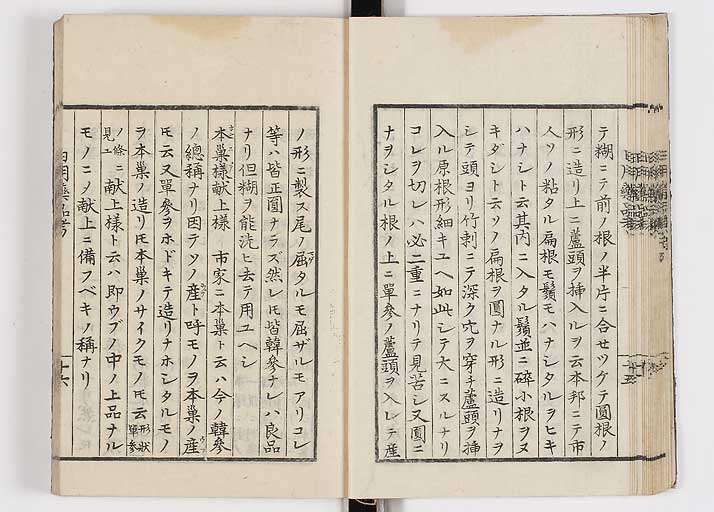 テ糊ニテ前ノ根ノ半片ニ合セツケテ圓根ノ
形ニ造リ上ニ蘆頭ヲ挿入ルヲ云本邦ニテ市
人ツノ粘タル扁根モ鬚モハナシタルヲヒキ
ハナシト云其内ニ入タル鬚並ニ碎小根ヲヌ
キダシト云ツノ扁根ヲ圓ナル形ニ造リナヲ
シテ頭ヨリ竹刺ニテ深ク穴ヲ穿チ蘆頭ヲ挿
入ル原根形細キユヘ如此シテ大ニスルナリ
コレヲ切レハ必二重ニナリテ見苦シ又圓ニ
ナヲシタル根ノ上ニ單參ノ蘆頭ヲ入レテ産
ノ形ニ製ス尾ノ屈タルモ屈ザルモアリコレ
等ハ皆正圓ナラズ然レ𪜈皆韓參ナレハ良品
ナリ但糊ヲ能洗ヒ去テ用ユヘシ
本巣様献上様 市家ニ本巣ト云ハ今ノ韓參
ノ總稱ナリ因テツノ産ト呼モノヲ本巣ノ産
𪜈云又單參ヲホドキテ造リナホシタルモノ
ヲ本巣ノ造リ𪜈本巣ノサイクモノ𪜈云形状單參
ノ條ニ見ユ献上様ト云ハ即ウブノ中ノ上品ナル
モノニノ献上ニ備フベキノ稱ナリ
十六
十五